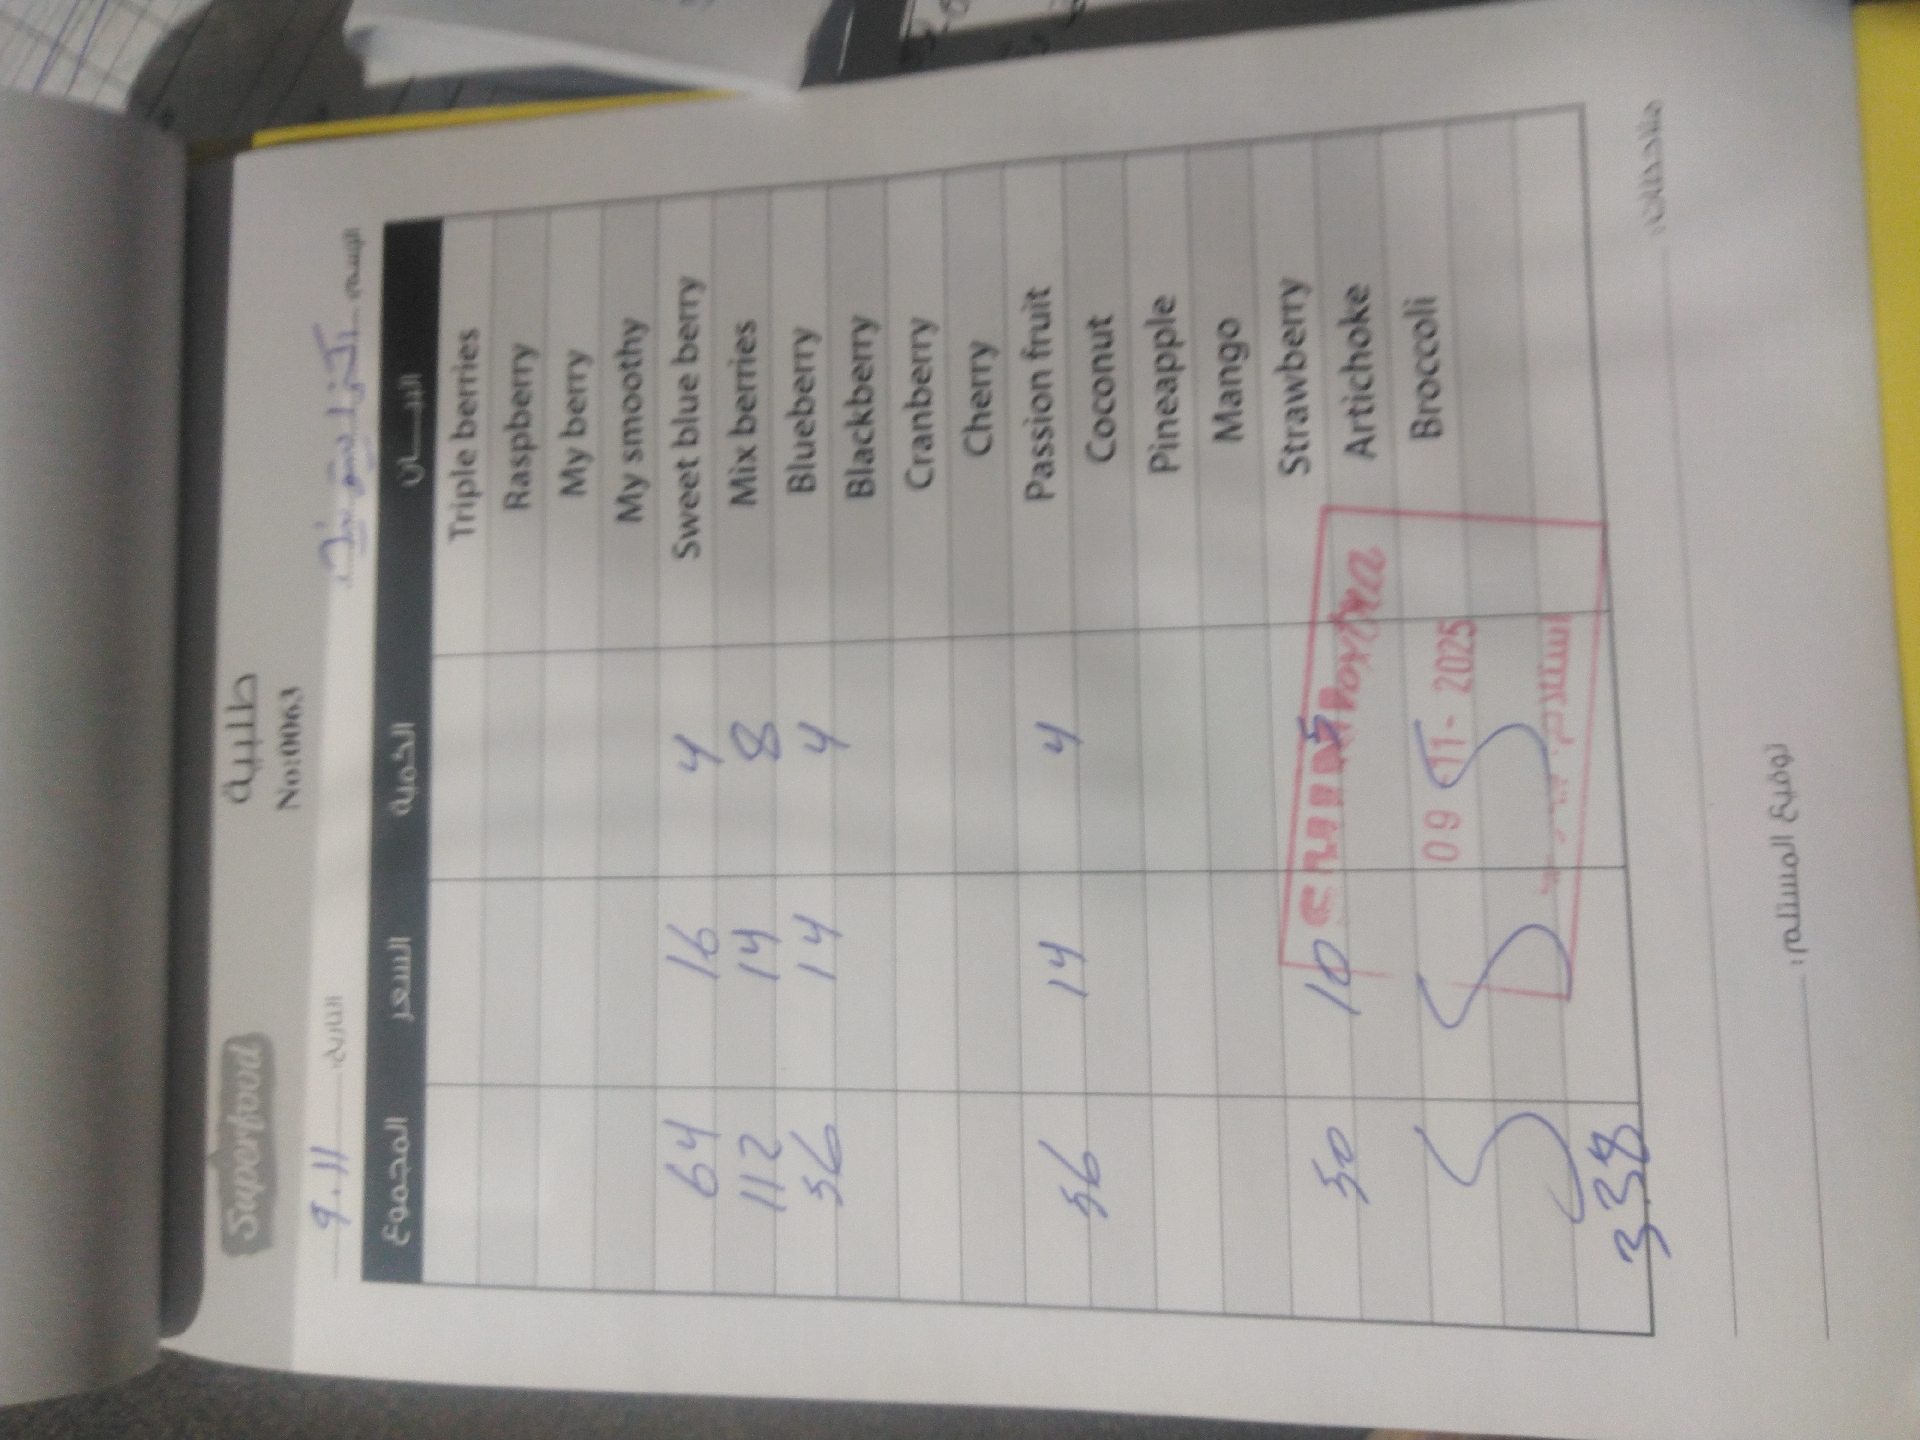 Superfood
طلبية
No:0063
الاسم
التاريخ: 9.11
البيـــان الكمية السعر المجموع
Triple berries
Raspberry
My berry
My smoothy
Sweet blue berry 4 16 64
Mix berries 8 14 112
Blueberry 4 14 56
Blackberry
Cranberry
Cherry
Passion fruit 4 14 56
Coconut
Pineapple
Mango
Strawberry 5 10 50
Artichoke
Broccoli
09 -11- 2025
استلام
338
ملاحظات:
توقيع المستلم: